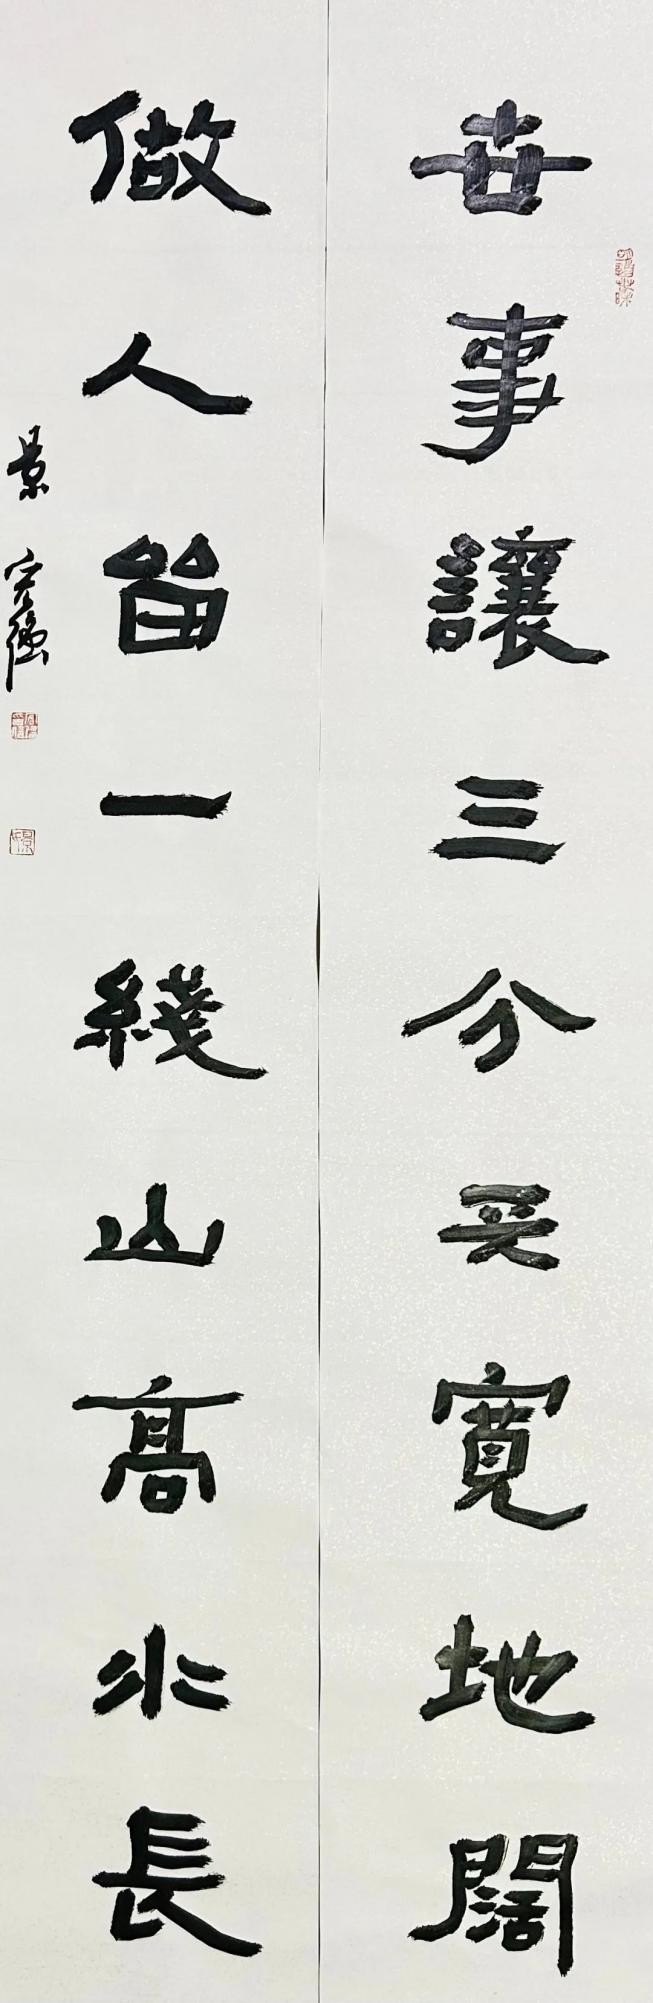 世事讓三分天寬地闊
做人留一綫山高水長
景